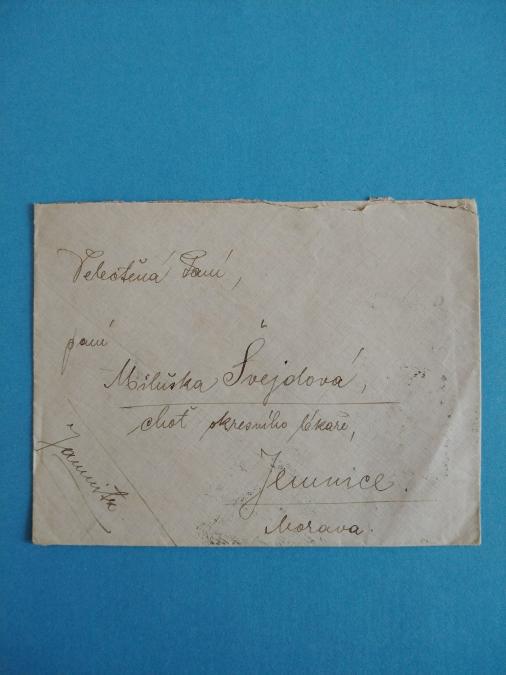 Velectěná Paní,
paní
Miluška Švejdová,
choť okresního lékaře,
Jemnice.
Morava.